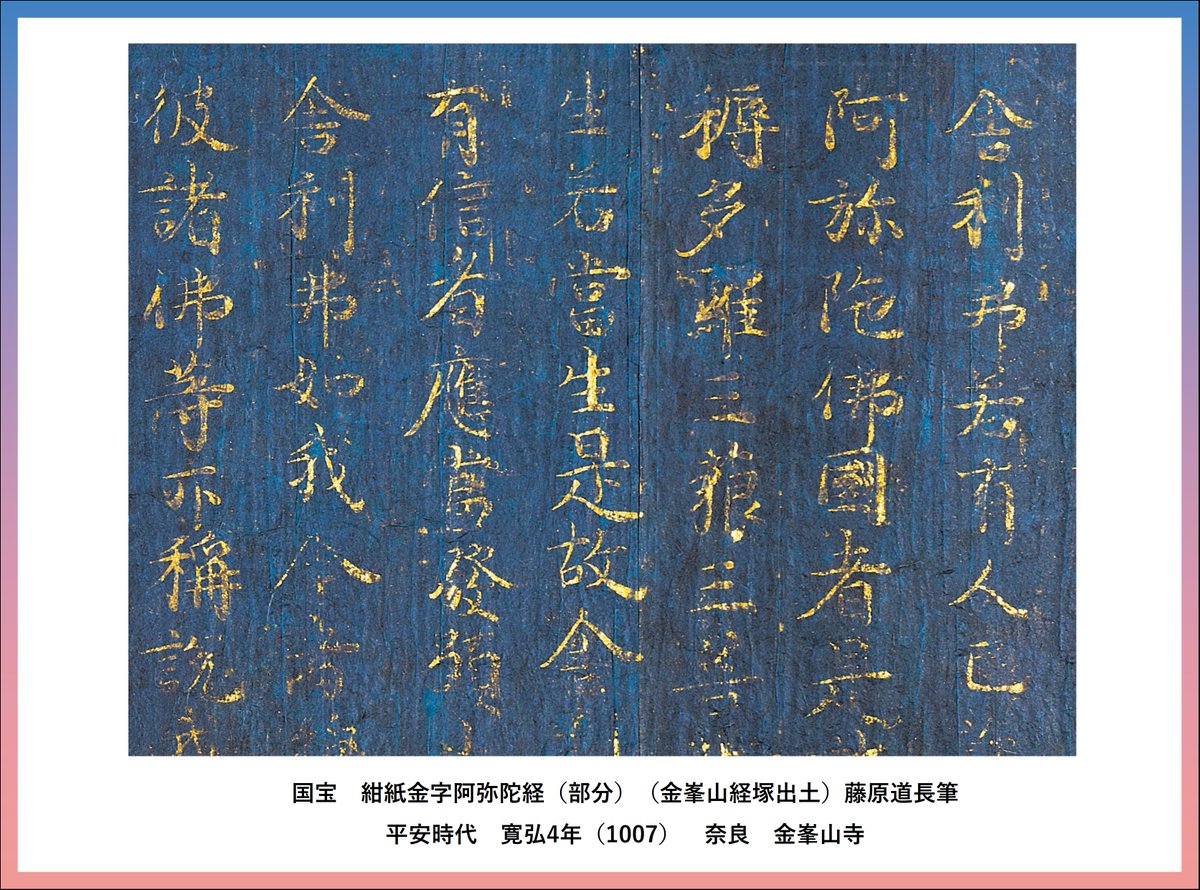 舍利弗若有人已
阿弥陀佛國者是
耨多羅三藐三菩
生若當生是故舍
有信者應當發願
舍利弗如我今者
彼諸佛等亦稱說
国宝　紺紙金字阿弥陀経（部分）（金峯山経塚出土）藤原道長筆
平安時代　寛弘4年（1007）　奈良　金峯山寺